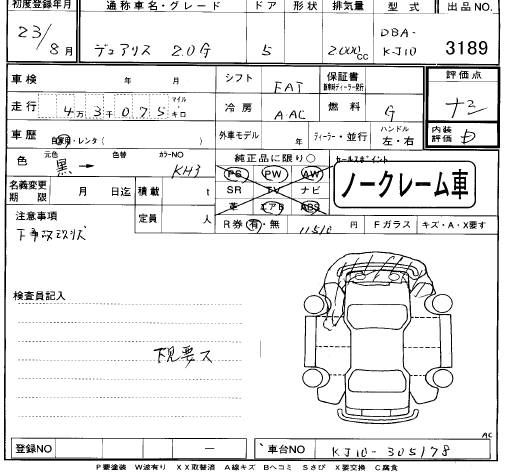 初度登録年月 通称車名・グレード ドア 形状 排気量 型式 出品NO.
23/8月 デュアリス 2.0G 5 2000cc DBA-KJ10 3189
車検 年 月 シフト FAT 保証書 評価点
走行 4万3千075 マイル キロ 冷房 AAC 燃料 G
車歴 自家用・レンタ( ) 外車モデル 年 ディーラー・並行 ハンドル 左・右 内装評価 D
色 元色 黒 → 色替 カラーNO KH3 純正品に限り○ セールスポイント
PS PW AW
ノークレーム車
名義変更期限 月 日迄 積載 t SR TV ナビ
定員 人 革 エアB ABS
注意事項 R券 有・無 11510 円 Fガラス キズ・A・X要す
検査員記入
下見要ス
登録NO ー 車台NO KJ10-305178
AC
P要塗装 W波有り XX取替済 A線キズ Bヘコミ Sさび X要交換 C腐食